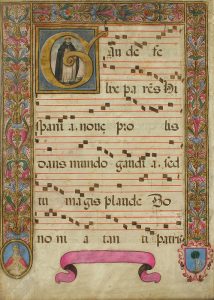 Gau de fe
lix pa rēs Hi
spani a. nouę pro lis
dans mundo gaudi a. sed
tu magis plaude Bo
no ni a tan ti patris